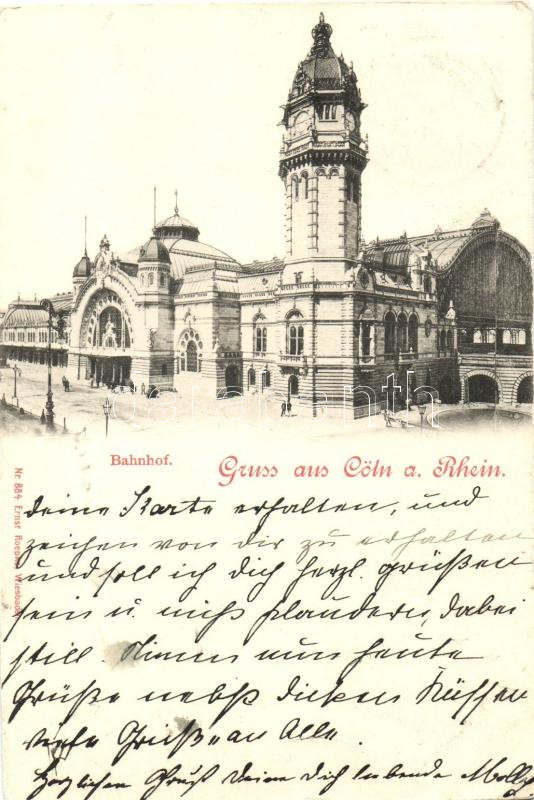 Bahnhof.
Gruss aus Cöln a. Rhein.
Nr. 884 Ernst Roepke, Wiesbaden
deine Karte erhalten, und
zeichen von dir zu erhalten
und soll ich dich herzl. grüßen
sein u. nicht plaudern, dabei
still. Nimm nun heute
Grüße nebst dicken Küssen
viele Grüße an Alle.
Herzlichen Gruß Deine Dich liebende Molly
darabanth.com